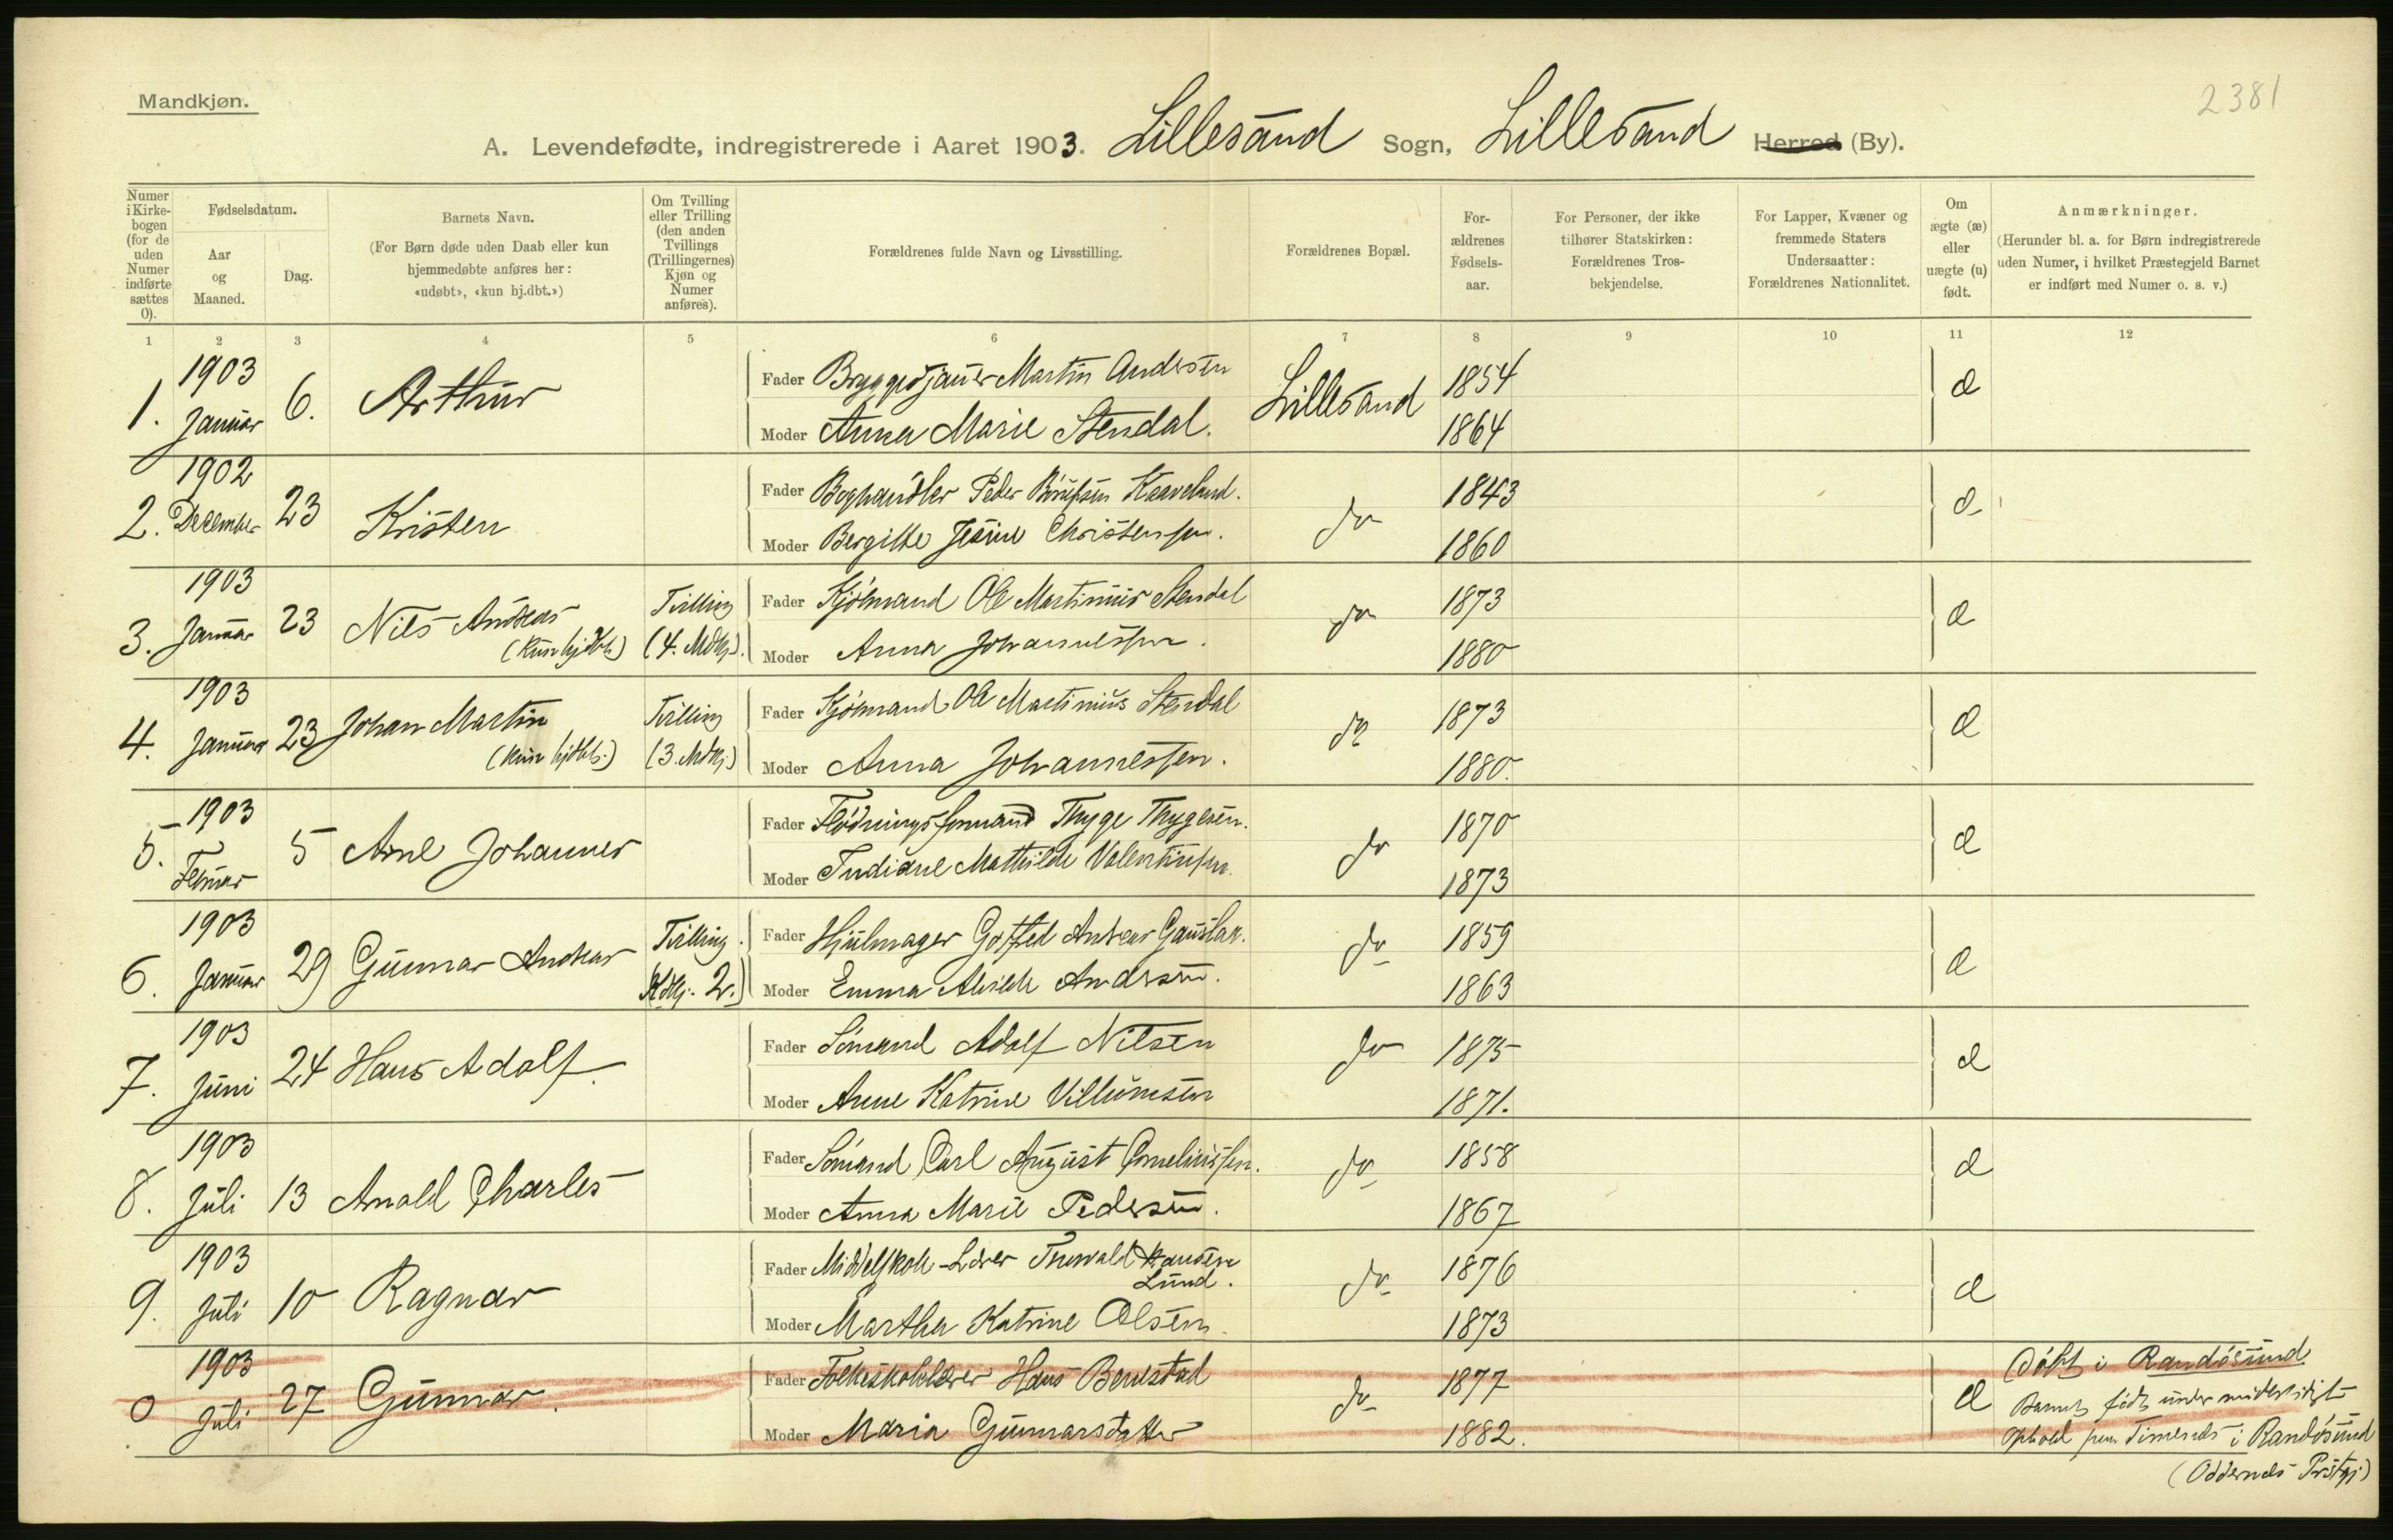 Mandkjøn.
2381
A. Levendefødte, indregistrerede i Aaret 1903. Lillesand Sogn, Lillesand Herred (By).
Numer i Kirke-bogen (for de uden Numer indførte sættes 0).
Fødselsdatum.
Aar og Maaned.
Dag.
Barnets Navn.
(For Børn døde uden Daab eller kun hjemmedøbte anføres her: «udøbt», «kun hj.dbt.»)
Om Tvilling eller Trilling (den anden Tvillings (Trillingernes) Kjøn og Numer anføres).
Forældrenes fulde Navn og Livsstilling.
Forældrenes Bopæl.
For-ældrenes Fødsels-aar.
For Personer, der ikke tilhører Statskirken: Forældrenes Tros-bekjendelse.
For Lapper, Kvæner og fremmede Staters Undersaatter: Forældrenes Nationalitet.
Om ægte (æ) eller uægte (u) født.
Anmærkninger.
(Herunder bl. a. for Børn indregistrerede uden Numer, i hvilket Præstegjeld Barnet er indført med Numer o. s. v.)
1 2 3 4 5 6 7 8 9 10 11 12
1. 1903 Januar 6. Arthur
Fader Martin Andersen Lillesand 1854 æ
Moder Anna Marie Stendal. 1864
2. 1902 December 23 Kristen
Fader Boghandler Peder Kaaveland. do 1843 æ
Moder Bergitte Jesine Christensen. 1860
3. 1903 Januar 23 Nils Andreas (kun hjdbt.) Tvilling (4. Mdkj.)
Fader Sjømand Ole Martinius Stendal do 1873 æ
Moder Anna Johannessen. 1880
4. 1903 Januar 23 Johan Martin (kun hjdbt.) Tvilling (3. Mdkj.)
Fader Sjømand Ole Martinius Stendal do 1873 æ
Moder Anna Johannessen. 1880.
5. 1903 Februar 5 Arne Johannes
Fader Thyge Thygesen. do 1870 æ
Moder Indiane Mathilde Valentinsen. 1873
6. 1903 Januar 29 Gunnar Andreas Tvilling. Kdkj. 2.)
Fader Hjulmager Gotfred Andreas Gauslaa. do 1859 æ
Moder Emma Andersen. 1863
7. 1903 Juni 24 Hans Adolf.
Fader Sømand Adolf Nilsen do 1875 æ
Moder Anne Katrine Villumsen 1871.
8. 1903 Juli 13 Arnold Charles
Fader Sømand Carl August Corneliussen. do 1858 æ
Moder Anna Marie Pedersen. 1867
9. 1903 Juli 10 Ragnar
Fader Middelskole-Lærer Thorvald Hansen Lund. do 1876 æ
Moder Martha Katrine Olsen. 1873
0 1903 Juli 27 Gunnar.
Fader Folkeskolelærer Hans Benestad do 1877 æ
Moder Maria Gunnarsdatter 1882.
Døbt i Randøsund.
Barnet født under midlertidigt
Ophold i Randøsund
(Oddernes Prstgj.)